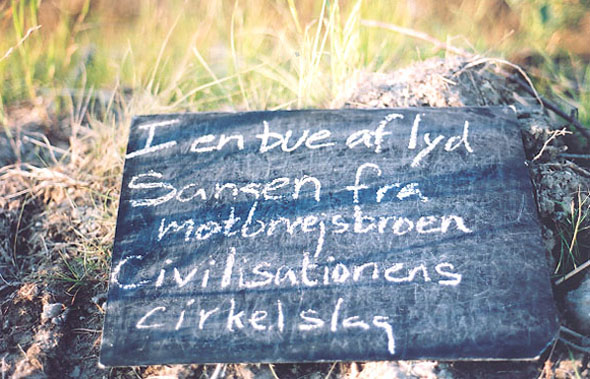 I en bue af lyd
Sangen fra
motorvejsbroen
Civilisationens
cirkelslag